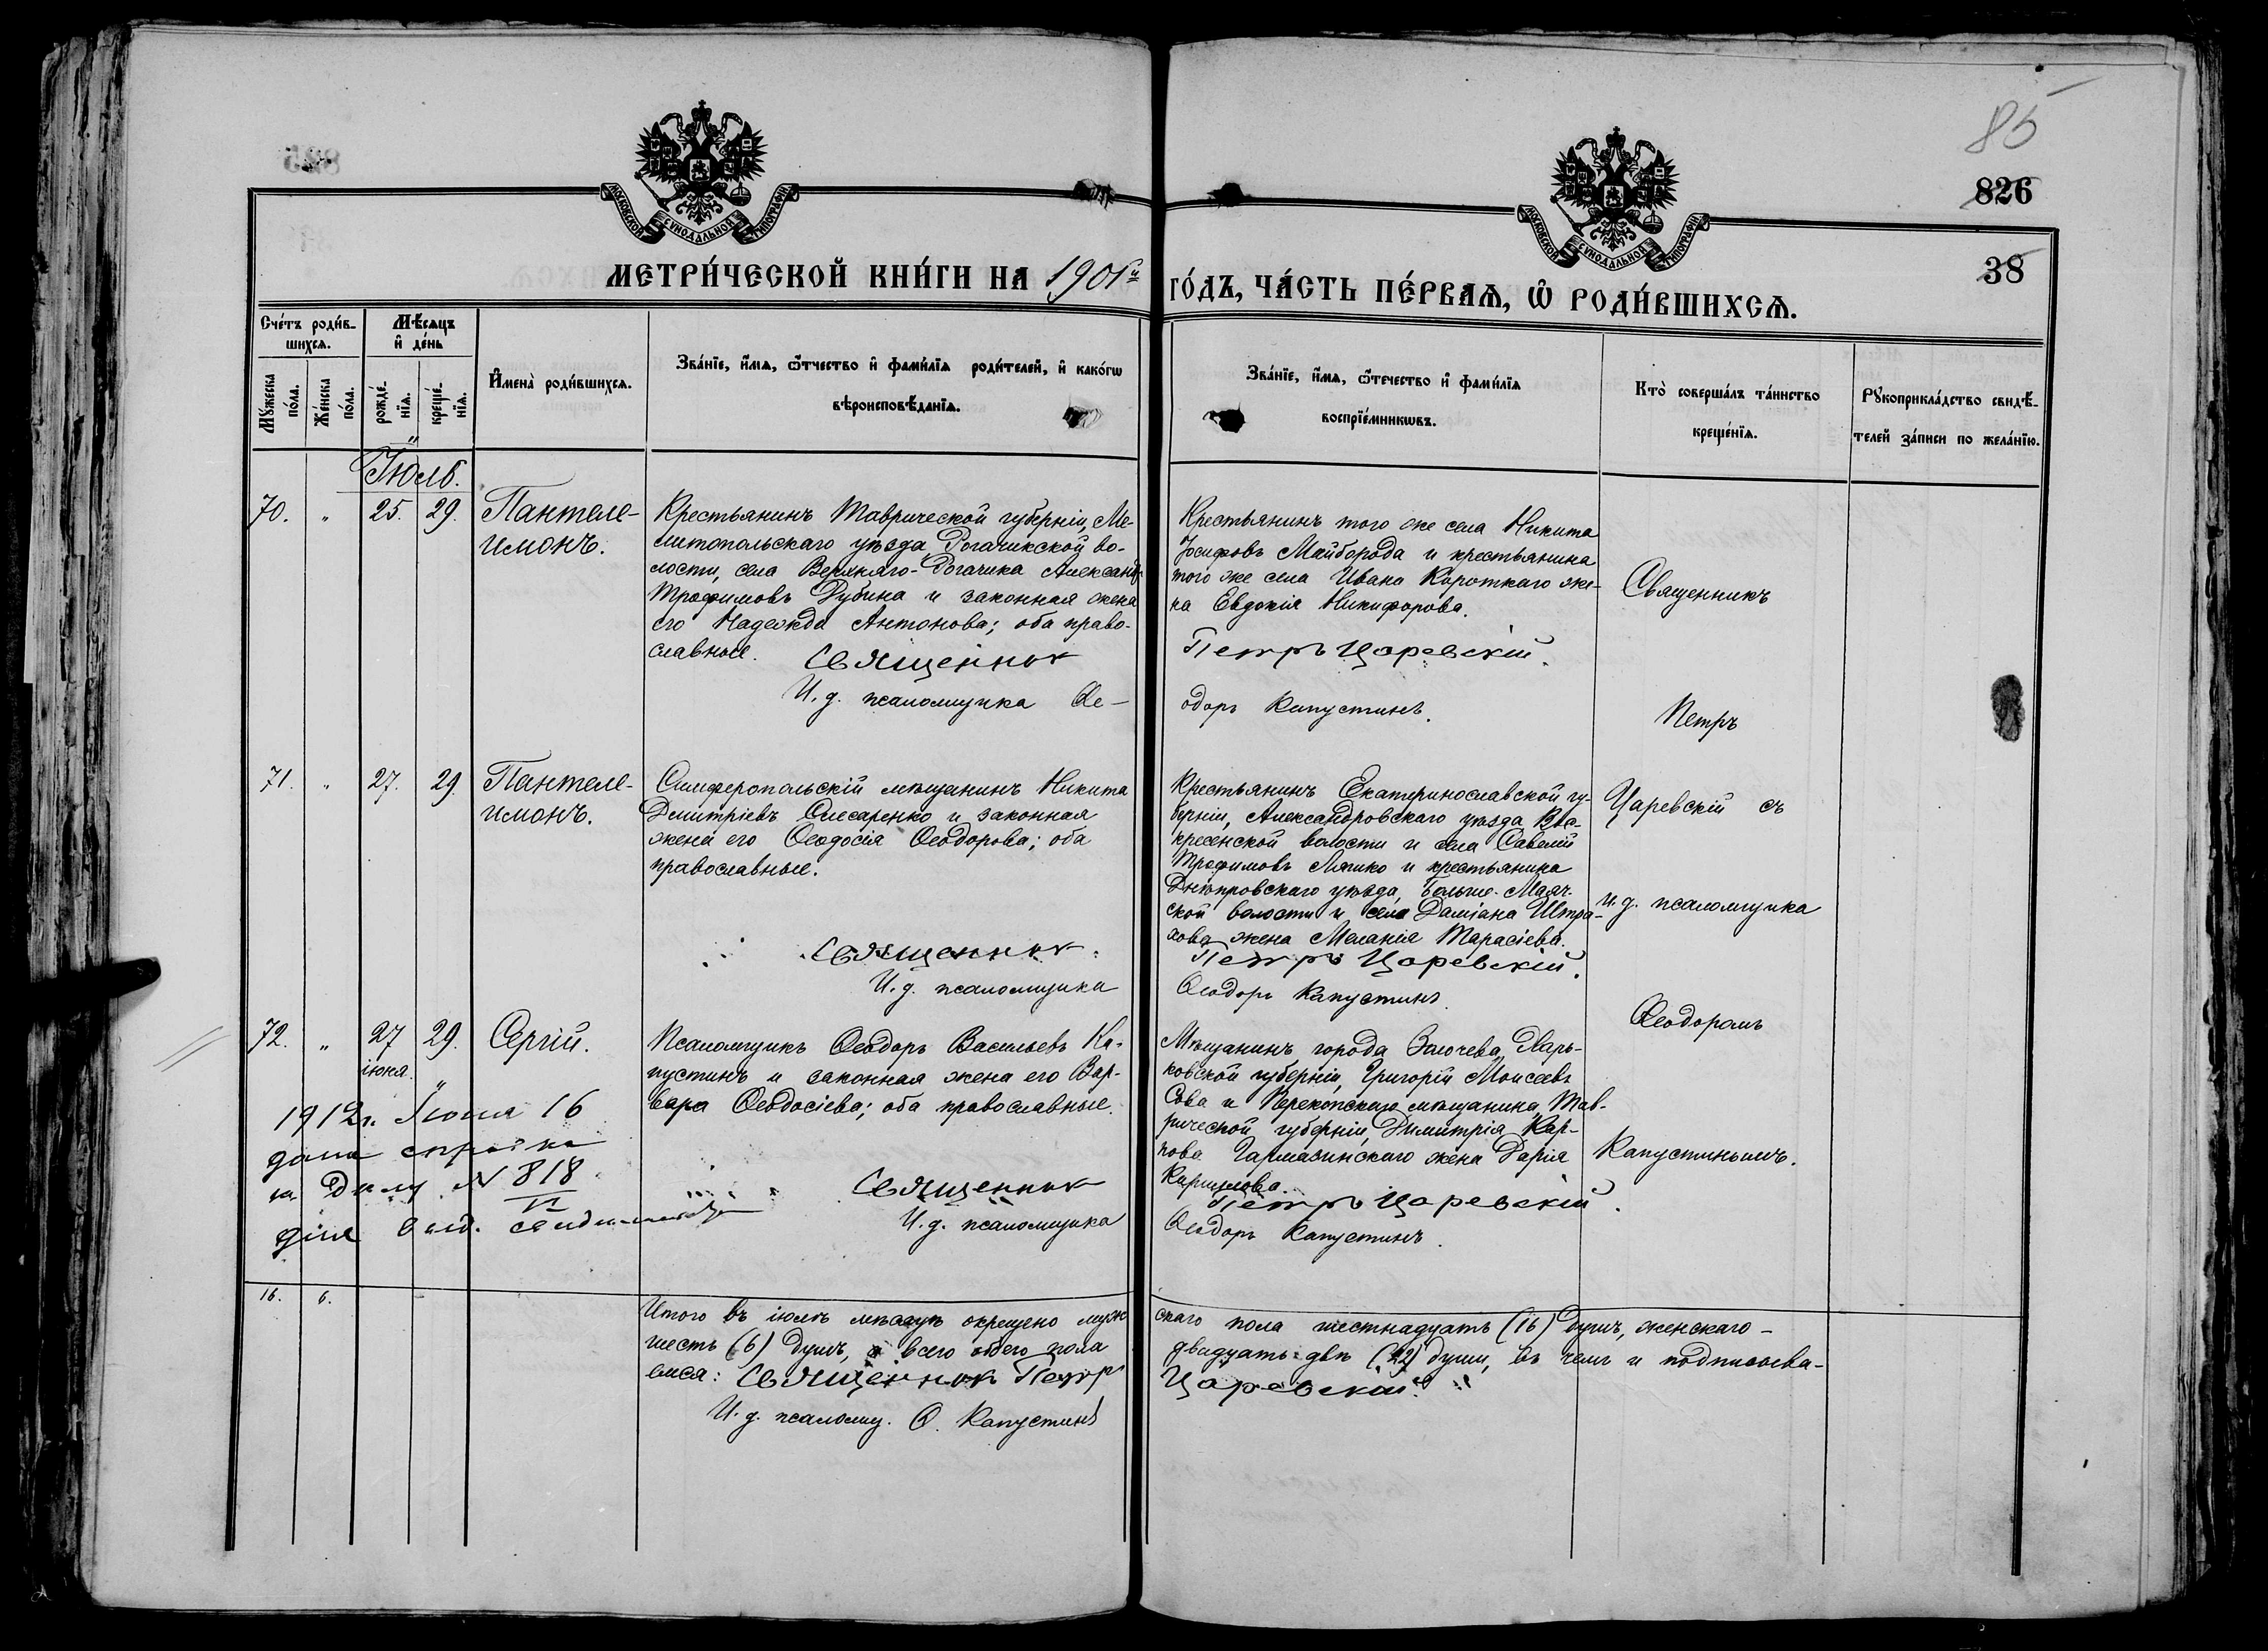 85
826
38
МОСКОВСКОЙ СѴНОДАЛЬНОЙ ТИПОГРАФІИ
МОСКОВСКОЙ СѴНОДАЛЬНОЙ ТИПОГРАФІИ
МЕТРИ́ЧЕСКОЙ КНИ́ГИ НА 1901й ГО́ДЪ, ЧА́СТЬ ПЕ́РВАѦ, Ѽ РОДИ́ВШИХСѦ.
Сче́тъ роди́в-
шихсѧ.
Мꙋ́жеска
по́ла.
Же́нска
по́ла.
Мѣ́сѧцъ
и҆ де́нь
рожде́-
нїѧ.
креще́-
нїѧ.
И҆мена̀ роди́вшихсѧ.
Зва́нїе, и҆́мѧ, ѻ҆́тчество и҆ фами́лїѧ роди́телей, и҆ како́гѡ
вѣроисповѣ́данїѧ.
Зва́нїе, и҆́мѧ, ѻ҆́течество и҆ фами́лїѧ
воспрїе́мникѡвъ.
Кто̀ соверша́лъ та́инство
креще́нїѧ.
Рꙋкоприкла́дство свидѣ́-
телей за́писи по жела́нїю.
Іюль.
70. " 25. 29. Пантеле-
имонъ.
Крестьянинъ Таврической губерніи, Ме-
литопольскаго уѣзда, Рогачикской во-
лости, села Верхняго-Рогачика Александръ
Трофимовъ Дубина и законная жена
его Надежда Антонова; оба право-
славные.
Священник
И. д. псаломщика Ѳе-
Крестьянинъ того же села Никита
Іосифовъ Майборода и крестьянина
того же села Ивана Короткаго же-
на Евдокія Никифорова.
Петръ Царевскій.
одоръ Капустинъ.
Священникъ
Петръ
71. " 27. 29. Пантеле-
имонъ.
Симферопольскій мѣщанинъ Никита
Димитріевъ Слесаренко и законная
жена его Ѳеодосія Ѳеодорова; оба
православные.
Священник.
И. д. псаломщика
Крестьянинъ Екатеринославской гу-
берніи, Александровскаго уѣзда Вос-
кресенской волости и села Савелій
Трофимовъ Ляшко и крестьянина
Днѣпровскаго уѣзда, Больше-Маяч-
ской волости и села Даміана Штра-
хова жена Меланія Тарасіева.
Петръ Царевскій.
Ѳеодоръ Капустинъ.
Царевскій съ
и. д. псаломщика
Ѳеодоромъ
72. " 27 29. Сергій.
іюня.
Псаломщикъ Ѳеодоръ Васильевъ Ка-
пустинъ и законная жена его Вар-
вара Ѳеодосіева; оба православные.
Священник
И. д. псаломщика
Мѣщанинъ города Золочева, Харь-
ковской губерніи, Григорій Моисеевъ
Сова и Перекопскаго мѣщанина, Тав-
рической губерніи, Димитрія Кар-
пова Гармазинскаго жена Дарія
Кириллова.
Петръ Царевскій.
Ѳеодоръ Капустинъ.
Капустинымъ.
1912г. Іюня 16
дана справка
на Дѣлу N 818
для выд. свидѣтельства
16. 6.
Итого въ іюлѣ мѣсяцѣ окрещено муж-
скаго пола шестнадцать (16) душъ, женскаго -
шесть (6) душъ, а всего обоего пола
двадцать двѣ (22) души, въ чемъ и подписыва-
емся: Священник Петръ
Царевскій.
И. д. псаломщ. Ѳ. Капустинъ